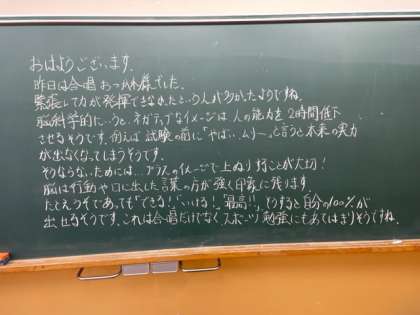 おはようございます。
昨日は合唱おつかれ様でした。
緊張して力が発揮できなかったという人が多かったようですね。
脳科学的にいうと、ネガティブなイメージは人の能力を2時間低下
させるそうです。例えば試験の前に「やばい、ムリー」と言うと本来の実力
が出なくなってしまうそうです。
そうならないためには…プラスのイメージで上ぬり打すことが大切!
脳は行動や口に出した言葉の方が強く印象に残ります。
たとえウソであっても「できる!」「いける!」「最高!!」そうすると自分の100%が
出せるそうです。これは合唱だけでなくスポーツ、勉強にもあてはまりそうですね。